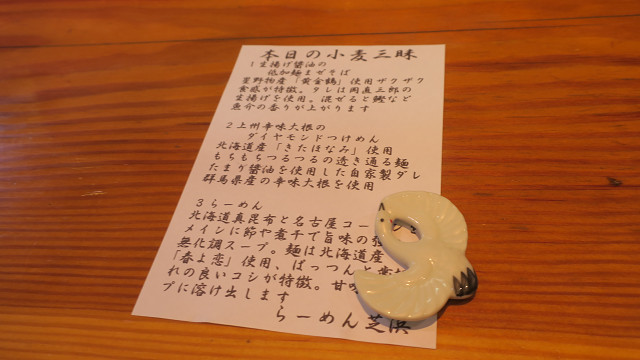 本日の小麦三昧
1生揚げ醤油の
低加麺まぜそば
星野物産「黄金鶴」使用ザクザク
食感が特徴。タレは岡直三郎の
生揚げを使用。混ぜると鰹など
魚介の香りが上がります
2上州辛味大根の
ダイヤモンドつけめん
北海道産「きたほなみ」使用
もちもちつるつるの透き通る麺
たまり醤油を使用した自家製ダレ
群馬県産の辛味大根を使用
3らーめん
北海道真昆布と名古屋コー
メインに節や煮干で旨味の
無化調スープ。麺は北海道産
「春よ恋」使用、ぱっつんと
れの良いコシが特徴。甘
プに溶け出します
らーめん芝浜